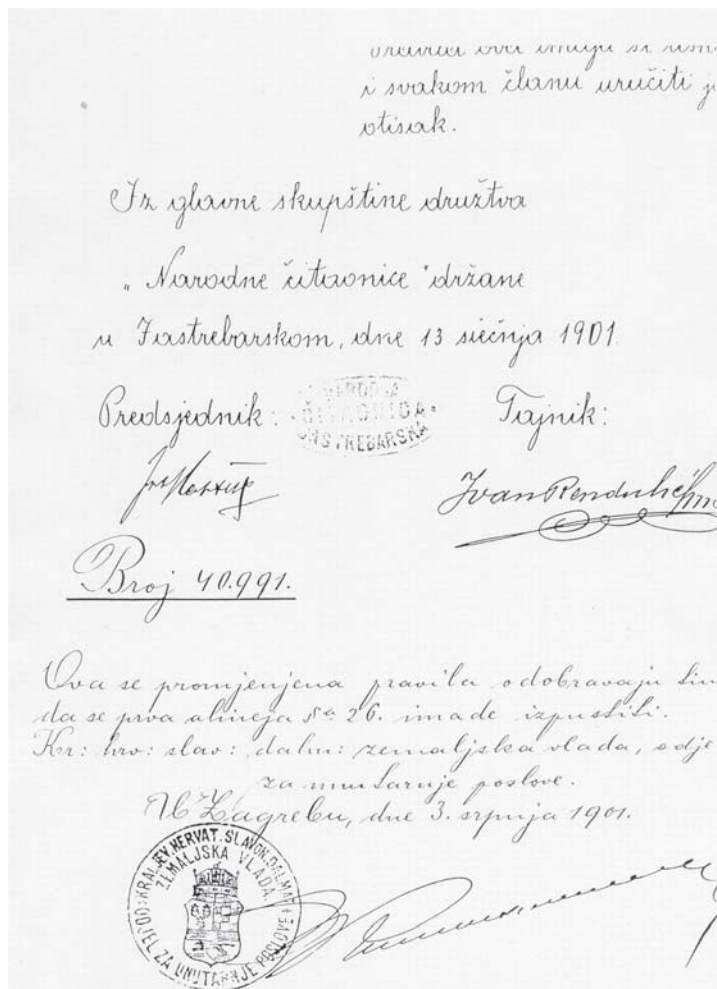 i svakom članu uručiti
otisak.
Iz glavne skupštine družtva
„Narodne čitaonice" držane
u Jastrebarskom, dne 13 siečnja 1901.
Predsjednik:
NARODNA
ČITAONICA
JASTREBARSKA
Tajnik:
Ivan Rendulić
Broj 40.991.
Ova se promjenjena pravila odobravaju tim
da se prva alineja §a 26. imade izpustiti.
Kr: hrv: slav: dalm: zemaljska vlada, odje
za unutarnje poslove.
U Zagrebu, dne 3. srpnja 1901.
KRALJEV. HERVAT. SLAVON. DALMAT.
ZEMALJSKA VLADA.
ODJEL ZA UNUTARNJE POSLOVE